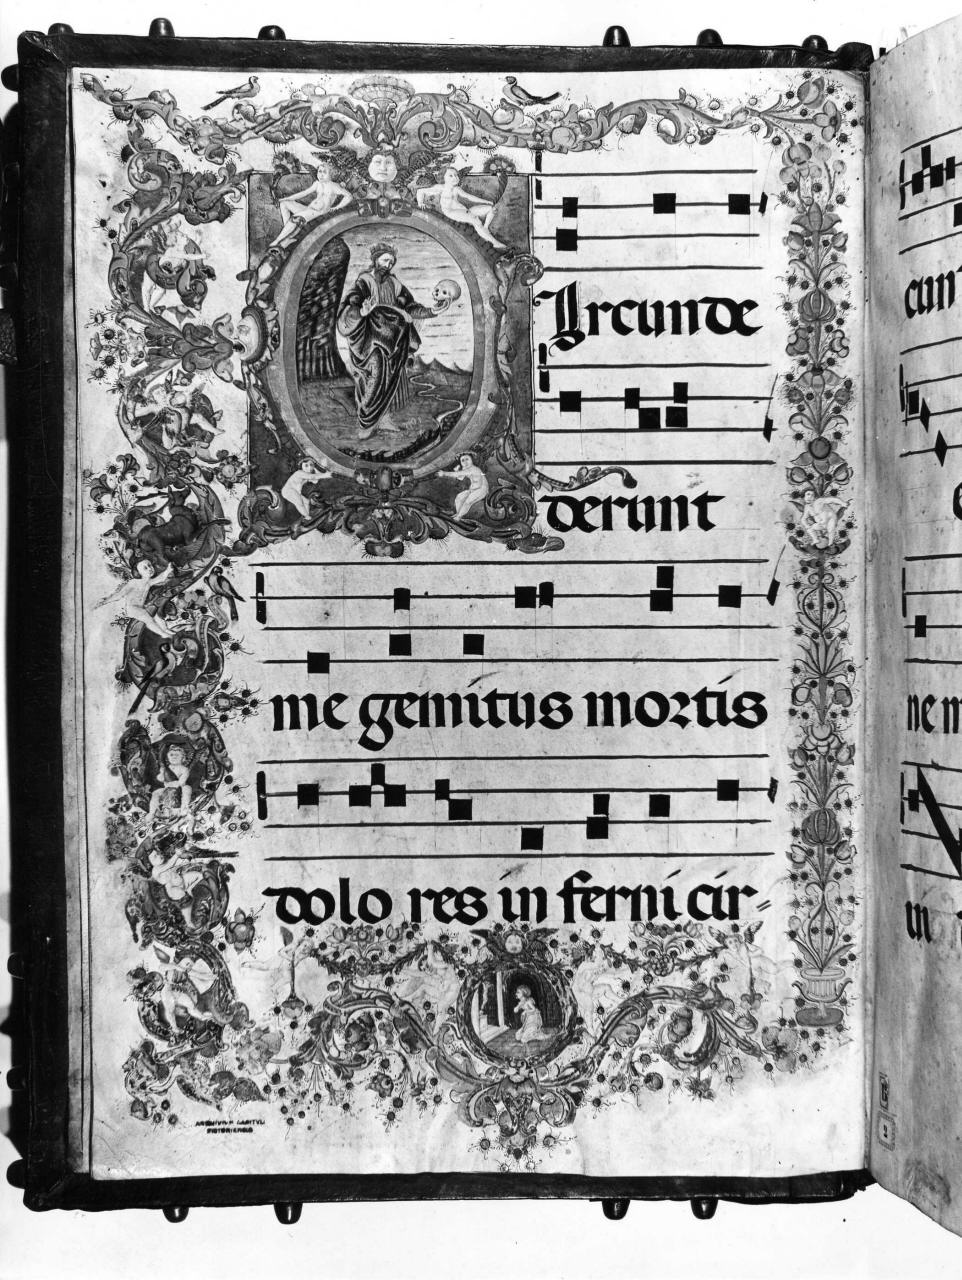 Circunde
derunt
me gemitus mortis
dolo res in ferni cir=
ARCHIVIVM CAPITVLI
PISTORIENSIS
cun
ne m
in